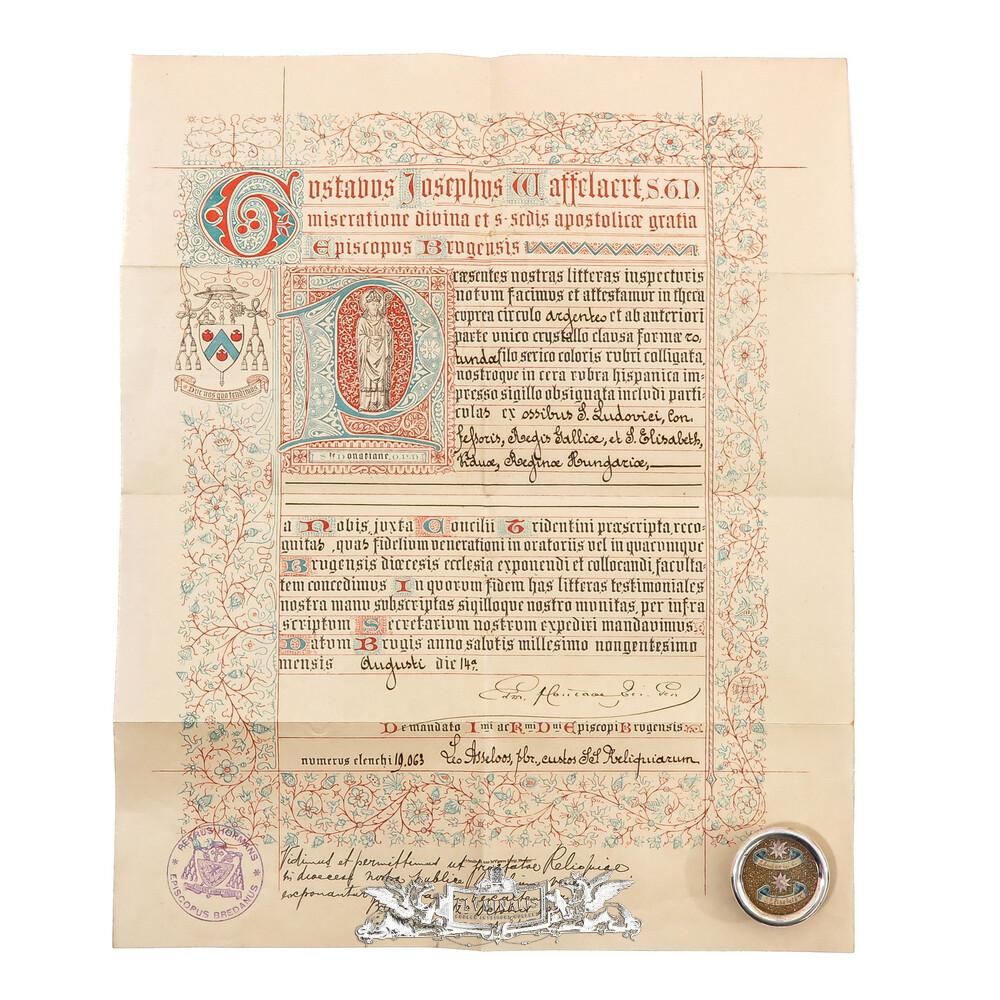 Gustavus Josephus Waffelaert, S.T.D.
miseratione divina et s. sedis apostolicæ gratia
Episcopus Brugensis
Præsentes nostras litteras inspecturis
notum facimus et attestamur in theca
cuprea circulo argenteo et ab anteriori
parte unico crystallo clausa formæ ro,
tundæ filo serico coloris rubri colligata,
nostroque in cera rubra hispanica im-
presso sigillo obsignata includi parti-
culas ex ossibus S. Ludovici, Con
fessoris, Regis Galliæ, et S. Elisabeth,
Viduæ, Reginæ Hungariæ,
Duc nos quo tendimus
Ste Donatiane O.P.N.
a Nobis, juxta Concilii Tridentini præscripta, reco-
gnitas, quas fidelium venerationi in oratoriis vel in quacumque
Brugensis diœcesis ecclesia exponendi et collocandi, faculta-
tem concedimus In quorum fidem has litteras testimoniales
nostra manu subscriptas sigilloque nostro munitas, per infra
scriptum Secretarium nostrum expediri mandavimus.
Datum Brugis anno salutis millesimo nongentesimo
mensis Augusti die 14a.
De mandato Imi ac Rmi Dni Episcopi Brugensis
numerus elenchi 19,063 Leo Asseloos, pbr, custos SS Reliquiarum
PETRUS HOPMANS
EPISCOPUS BREDANUS
Vidimus et permittimus ut Reliquiae
in dioecesi nostra publicae
exponantur